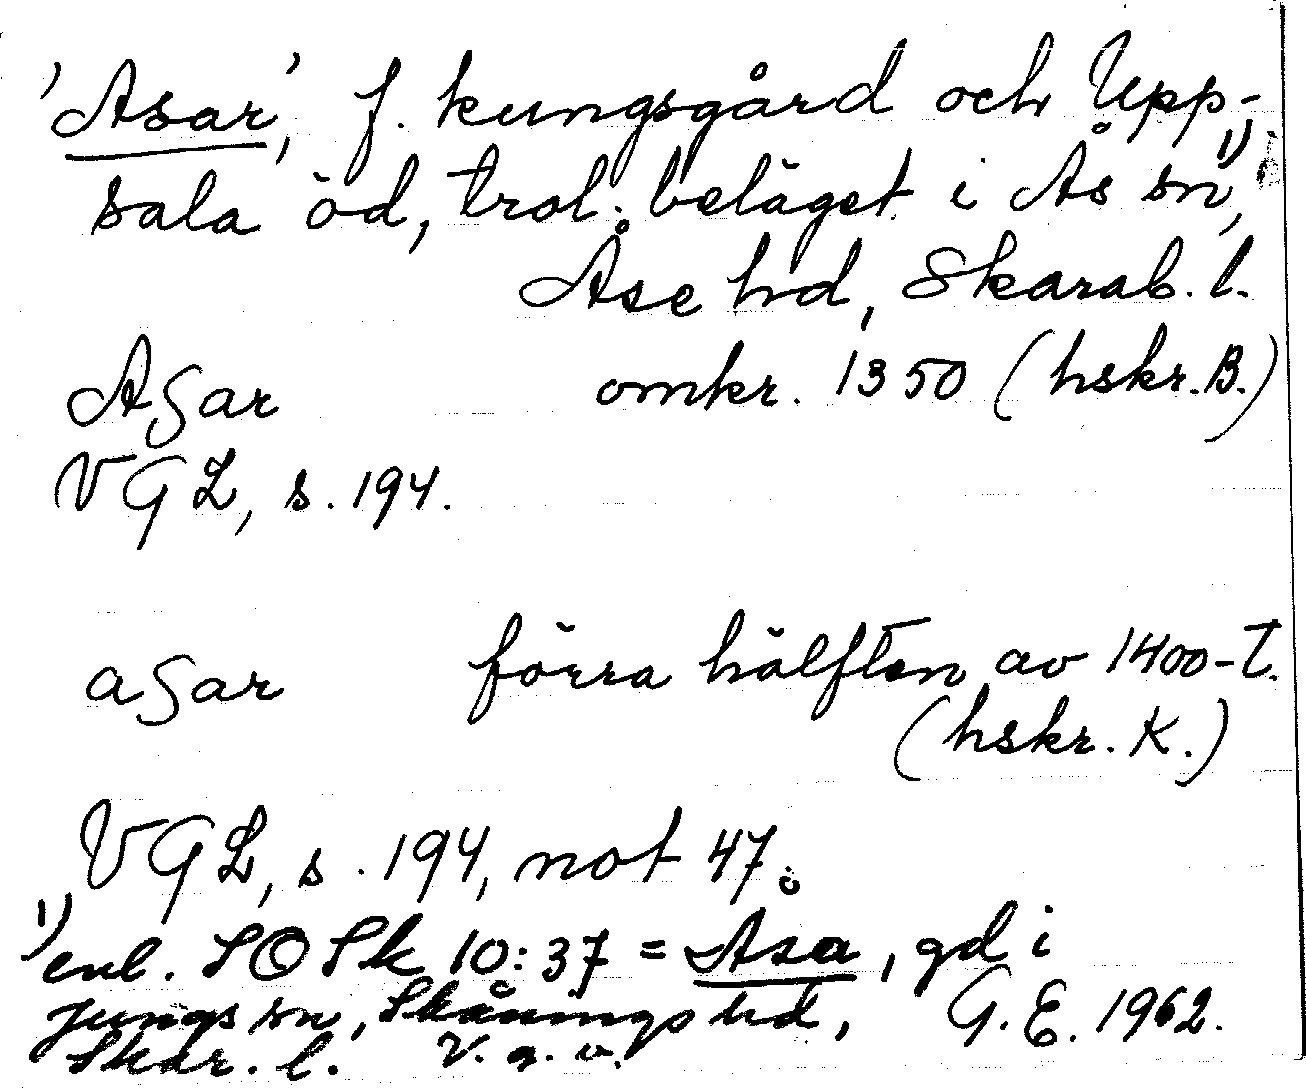 'Asar', f. kungsgård och Upp-
sala öd, trol. beläget i Ås sn,¹⁾
Åse hd, Skarab. l.
Aʃar omkr. 1350 (hskr. B.)
VGL, s. 194.
aʃar förra hälften av 1400-t.
(hskr. K.)
VGL, s. 194, not 47.
¹⁾ enl. SOSk 10:37 = Åsa, gd i
Jungs sn, Skånings hd, G. E. 1962.
Skar. l. V. g. v.